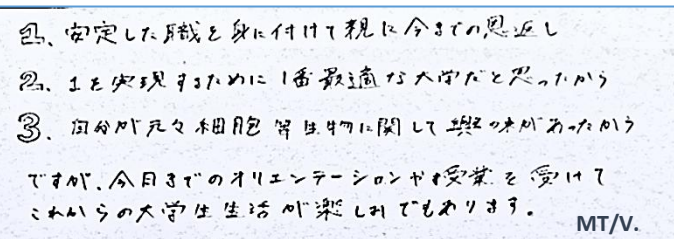 1. 安定した職を身に付けて親に今までの恩返し
2. 1を実現するために1番最適な大学だと思ったから
3. 自分が元々細胞等生物に関して興味があったから
ですが、今日までのオリエンテーションや授業を受けて
これからの大学生生活が楽しみでもあります。
MT/V.